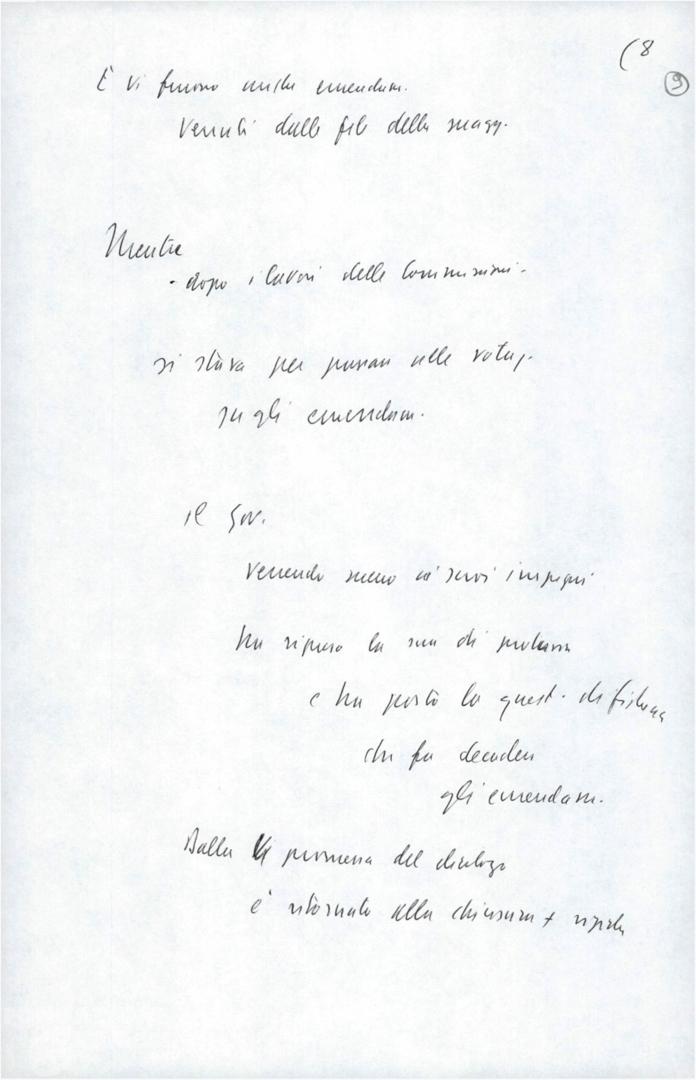 (8
9
E vi furono anche emendam.
venuti dalle file della magg.
Mentre
- dopo i lavori delle Commissioni -
si stava per passare alle votaz.
sugli emendam.
il Gov.
venendo meno ai suoi impegni
ha ripreso la sua di
e ha posto la quest. di fiducia
che fa decadere
gli emendam.
Dalla promessa del dialogo
è ritornato alla chiusura + rigida